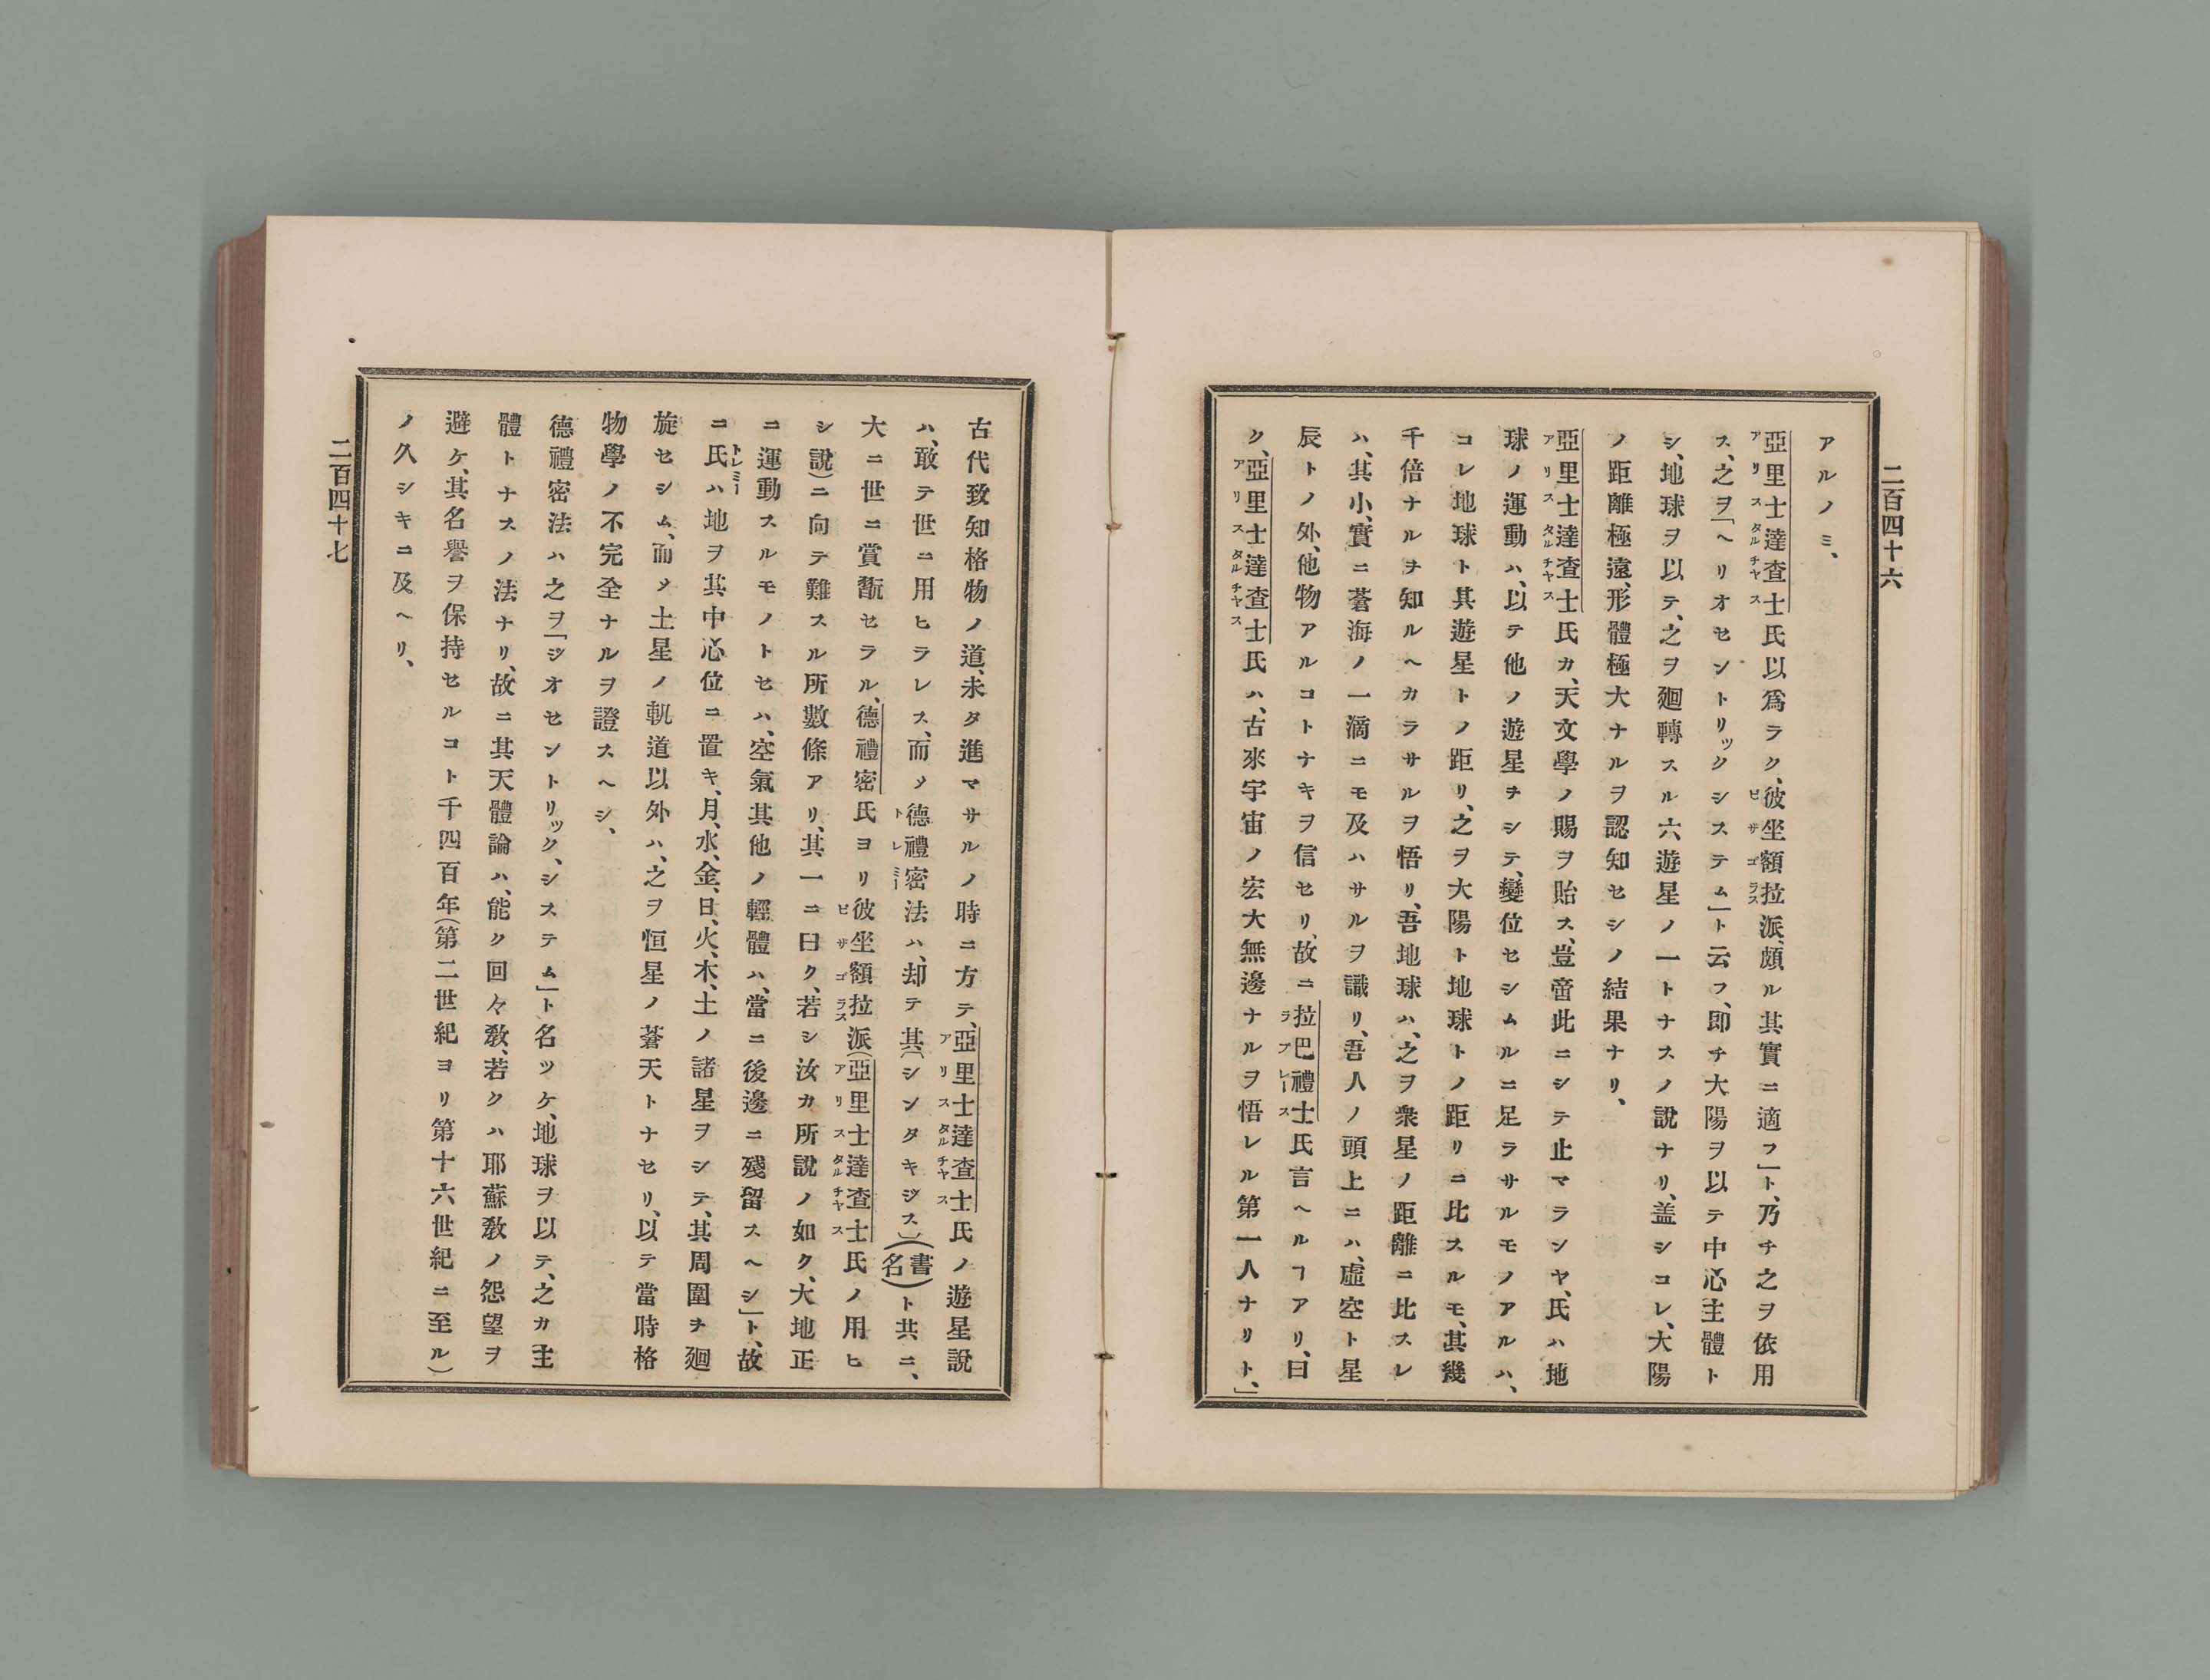 二百四十六
アルノミ、
亞里士達查士氏以爲ラク、彼坐額拉派、頗ル其實ニ適フ」ト、乃チ之ヲ依用
ス、之ヲ「ヘリオセントリックシステム」ト云フ、即チ大陽ヲ以テ中心主體ト
シ、地球ヲ以テ、之ヲ廻轉スル六遊星ノ一トナスノ說ナリ、盖シコレ、大陽
ノ距離極遠、形體極大ナルヲ認知セシノ結果ナリ、
亞里士達查士氏カ、天文學ノ賜ヲ貽ス、豈啻此ニシテ止マランヤ、氏ハ地
球ノ運動ハ、以テ他ノ遊星ヲシテ、變位セシムルニ足ラサルモノアルハ、
コレ地球ト其遊星トノ距リ、之ヲ大陽ト地球トノ距リニ比スルモ、其幾
千倍ナルヲ知ルヘカラサルヲ悟リ、吾地球ハ、之ヲ衆星ノ距離ニ比スレ
ハ、其小、實ニ蒼海ノ一滴ニモ及ハサルヲ識リ、吾人ノ頭上ニハ、虛空ト星
辰トノ外、他物アルコトナキヲ信セリ、故ニ拉巴禮士氏言ヘルヿアリ、曰
ク、亞里士達查士氏ハ、古來宇宙ノ宏大無邊ナルヲ悟レル第一人ナリト、」
古代致知格物ノ道、未タ進マサルノ時ニ方テ、亞里士達查士氏ノ遊星說
ハ、敢テ世ニ用ヒラレス、而〆德禮密法ハ、却テ其(シンタキジス)(書名)ト共ニ、
大ニ世ニ賞翫セラル、德禮密氏ヨリ彼坐額拉派(亞里士達查士氏ノ用ヒ
シ說)ニ向テ難スル所數條アリ、其一ニ曰ク、若シ汝カ所說ノ如ク、大地正
ニ運動スルモノトセハ、空氣其他ノ輕體ハ、當ニ後邊ニ殘留スヘシ」ト、故
ニ氏ハ地ヲ其中心位ニ置キ、月、水、金、日、火、木、土ノ諸星ヲシテ、其周圍ヲ廻
旋セシム、而〆土星ノ軌道以外ハ、之ヲ恒星ノ蒼天トナセリ、以テ當時格
物學ノ不完全ナルヲ證スヘシ、
德禮密法ハ之ヲ「ジオセントリック、システム」ト名ツケ、地球ヲ以テ、之カ主
體トナスノ法ナリ、故ニ其天體論ハ、能ク回々敎、若クハ耶蘇敎ノ怨望ヲ
避ケ、其名譽ヲ保持セルコト千四百年(第二世紀ヨリ第十六世紀ニ至ル)
ノ久シキニ及ヘリ、
二百四十七